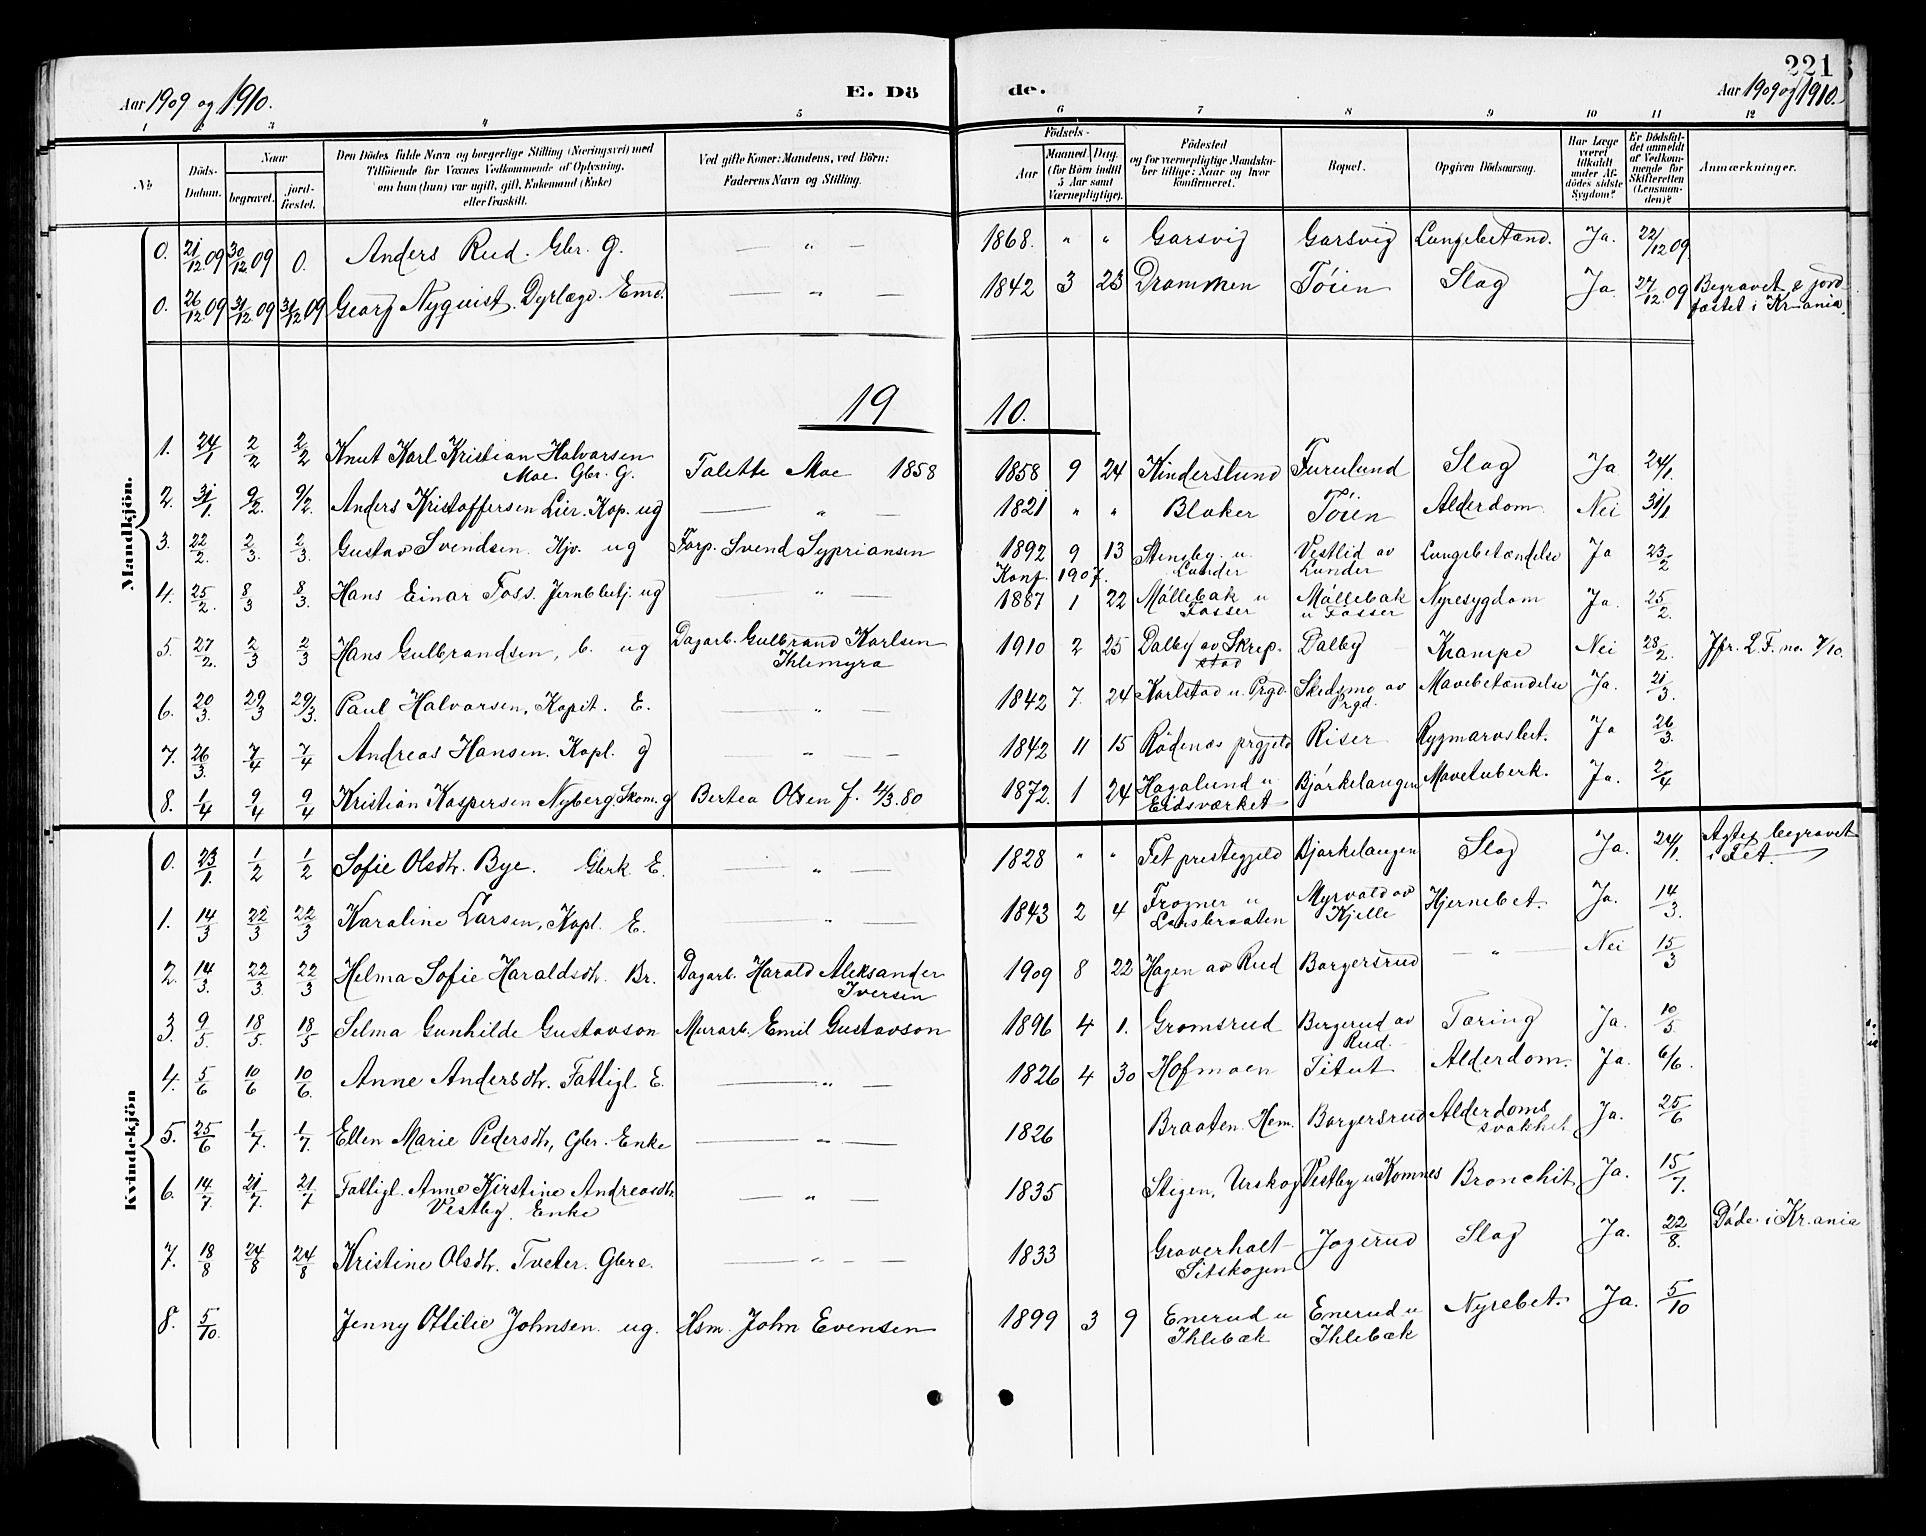 221
Aar 1909 og 1910.
E. Dö
de.
Aar 1909 og 1910.
1 2 3 4 5 6 7 8 9 10 11 12
No
Döds-Datum.
Naar
begravet.
jord-fæstet.
Den Dödes fulde Navn og borgerlige Stilling (Næringsvei) med
Tilföiende for Voxnes Vedkommende af Oplysning,
om hun (han) var ugift, gift, Enkemand (Enke)
eller fraskilt.
Ved gifte Koner: Mandens, ved Börn:
Faderens Navn og Stilling.
Födsels-
Aar
Maaned. Dag.
(for Börn indtil
5 Aar samt
Værnepligtige).
Födested
og for værnepligtige Mandskaber tillige: Naar og hvor
konfirmeret.
Bopæl.
Opgiven Dödsaarsag.
Har Læge været tilkaldt under Afdödes sidste Sygdom?
Er Dödsfaldet anmeldt af Vedkommende for Skifteretten (Lensmanden)?
Anmærkninger.
Mandkjön.
0. 21/12 09 30/12 09 0. Anders Rud. Gbr. g. — " — 1868. " " Garsvig Garsvig Lungebetænd. Ja. 22/12 09
0. 26/12 09 31/12 09 31/12 09 Georg Nyquist. Dyrlæge. Emd. — " — 1842 3 23 Drammen Töien Slag Ja 27/12 09 Begravet & jord
fæstet i Kr-ania.
19 10.
1. 24/1 2/2 2/2 Knut Karl Kristian Halvorsen
Moe Gbr. G. Talette Moe 1858 1858 9 24 Kinderslund Furulund Slag Ja 24/1.
2. 31/1 9/2. 9/2. Anders Kristoffersen Lier. Kap. ug — " — 1821 " " Blaker Töien Alderdom Nei 31/1
3. 22/2. 2/3. 2/3. Gustav Svendsen. Hjv. ug Forp. Svend Sypriansen 1892 9 13 Stensby. u. Vestlid av Lungebetændelse Ja 23/2
Konf. 1907. Lunder Lunder
4. 25/2. 8/3 8/3. Hans Einar Foss. Jernblbtj. ug — " — 1887 1 22 Möllebæk u Möllebæk Nyresygdom Ja. 25/2.
Fosser u Fosser
5. 27/2. 2/3 2/3 Hans Gulbrandsen, b. ug Dagarb. Gulbrand Karlsen 1910 2 25 Dalby av Skrep- Dalby Krampe Nei 28/2. Jfr. L.F. no. 7/10.
Ihlemyra stad
6. 20/3. 29/3 29/3. Paul Halvorsen, Kapit. E. — " — 1842 7. 24 Karlstad u. Prgd. Skedsmo av Mavebetændelse Ja. 21/3.
Prgd.
7. 26/3. 7/4 7/4 Andreas Hansen. Kapl. g — " — 1842 11 15 Rödenæs prgjeld Riser Rygmarvsbet. Ja 26/3.
8. 1/4 9/4 9/4 Kristian Kaspersen Nyberg. Skom. g Bertea Olsen f. 4/3. 80 1872. 1 24 Hagalund u Bjørkelangen Mavetuberk. Ja. 2/4
Eidsværket
Kvindekjön
0. 23/1. 1/2 1/2 Sofie Olsdtr. Bye. Gbrk. E. — " — 1828 " " Fet prestegjeld Bjørkelangen Slag Ja. 24/1. Agtes begravet
i Fet.
1. 14/3 22/3 22/3 Karoline Larsen, Kapl. E. — " — 1843 2 4 Frogner u Myrvold av Hjernebet. Ja. 14/3.
Lansbraaten Kjelle
2. 14/3. 22/3. 22/3 Helma Sofie Haraldsdtr. Br. Dagarb. Harald Aleksander 1909 8 22 Hagen av Rud Borgersrud — " — Nei 15/3
Iversen
3. 9/5. 18/5. 18/5 Selma Gunhilde Gustavson Murarb. Emil Gustavson 1896 4 1. Gromsrud Bergerud av Tæring Ja. 10/5
Rud.
4. 5/6 10/6 10/6. Anne Andersdtr. Fattigl. E. — " — 1826 4 30 Hofmoen Situt Alderdom. Ja. 6/6.
5. 25/6 1/7. 1/7. Ellen Marie Pedersdtr, Gbr. Enke — " — 1826 Braaten Hem. Borgersrud Alderdoms Ja. 25/6
svakhet
6. 14/7. 21/7. 21/7 Fattigl. Anne Kirstine Andreasdtr. — " — 1835 Stigen, Urskog Vestby u Komnes Bronchit Ja. 15/7.
Vestby. Enke
7. 18/8 24/8 24/8 Kristine Olsdtr. Tveter. Gbre. — " — 1833 Graverholt- Jogerud Slag Ja. 22/8. Döde i Kr.ania
Sitskogen
8. 5/10. Jenny Ottilie Johnsen. ug. Hsm. John Evensen 1899 3 9 Enerud u Enerud u Nyrebet. Ja. 5/10
Ihlebæk Ihlebæk